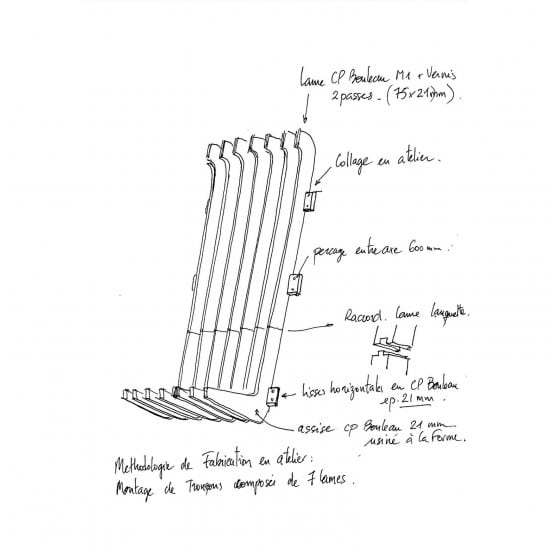 Lame CP Bouleau M1 + Vernis
2 passes - (75x21mm).
Collage en atelier.
percage entr'axe 600mm.
Raccord. lame languette.
lisses horizontales en CP Bouleau
ep. 21 mm.
assise CP Bouleau 21 mm
usiné à la Forme.
Methodologie de Fabrication en atelier:
Montage de Tronçons composés de 7 lames.